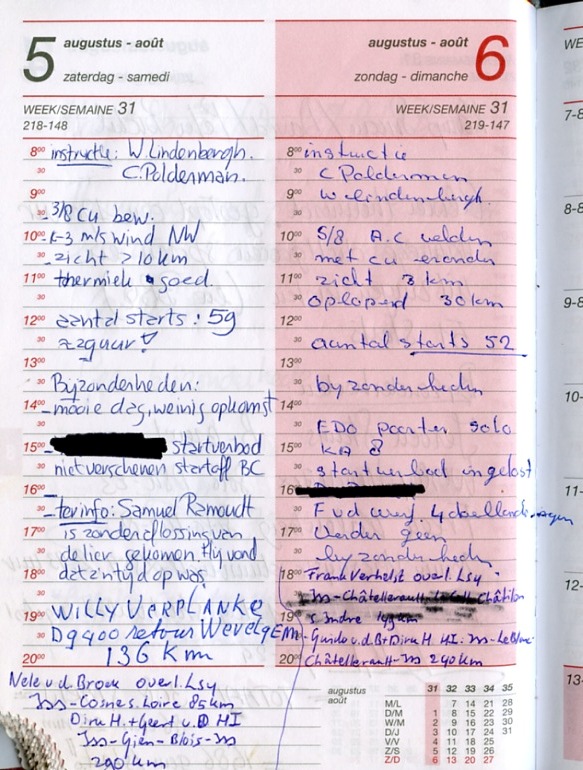 5
augustus - août
zaterdag - samedi
WEEK/SEMAINE 31
218-148
8⁰⁰ instructie: W Lindenbergh.
30 C. Polderman.
9⁰⁰
30 3/8 Cu bew.
10⁰⁰ K-3 m/s wind NW
30 zicht > 10 km
11⁰⁰ thermiek goed.
30
12⁰⁰ aantal starts: 59
30
13⁰⁰
30 Byzonderheden:
14⁰⁰ mooie dag, weinig opkomst
30
15⁰⁰ startverbod
30 niet verschenen startoff BC
16⁰⁰
30 ter info: Samuel Ramoudt
17⁰⁰ is zonder aflossing van
30 de lier gekomen. Hij vond
18⁰⁰ dat z'n tijd op was.
30
19⁰⁰ WILLY VERPLANKE
30 DG400 retour Wevelgem
20⁰⁰ 136 Km
Nele v.d. Broek overl. Lsy
Iss-Cosne s. Loire 85 km
Dirk H. + Geert v.D HI
Iss-Gien-Blois-Iss
290 km
augustus - août
zondag - dimanche
6
WEEK/SEMAINE 31
219-147
8⁰⁰ instructie
30 C Polderman
9⁰⁰ W Lindenbergh.
30
10⁰⁰ 5/8 A.C velden
30 met cu eronder
11⁰⁰ zicht 3 km
30 oplopend 30 km
12⁰⁰
30 aantal starts 52
13⁰⁰
30 byzonderheden
14⁰⁰
30 EDO poorter solo
15⁰⁰ KA 8
30 startverbod ingelost
16⁰⁰
30 F vd werf 4
17⁰⁰ Verder geen
30 byzonderheden
18⁰⁰ Frank Verhelst overl. Lsy.
30 Iss-Châtellerault Châtillon
19⁰⁰ s. Indre
30 Guido v.d. B + Dirk H. HI. Iss-Le Blanc
20⁰⁰ Châtellerault-Iss 290 km
augustus
août
31 32 33 34 35
M/L 7 14 21 28
D/M 1 8 15 22 29
W/M 2 9 16 23 30
D/J 3 10 17 24 31
V/V 4 11 18 25
Z/S 5 12 19 26
Z/D 6 13 20 27
WE
7-8
8-8
9-8
10-
11-
12-
13-